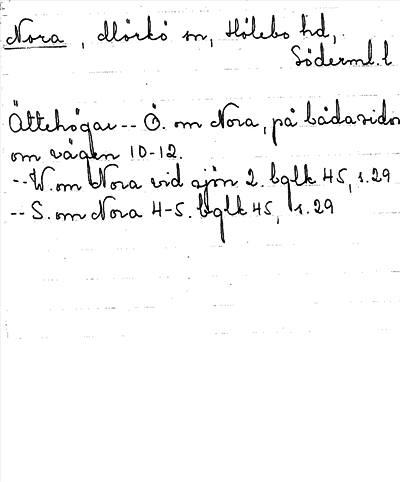 Nora, Mörkö sn, Hölebo hd,
Söderml.l
Ättehögar -- Ö. om Nora, på båda sidor
om vägen 10-12.
-- W. om Nora vid sjön 2. bglk 45, s.29
-- S. om Nora 4-5. bglk 45, s.29